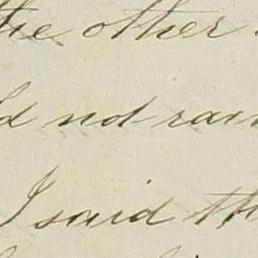 the other
not rain
I said th